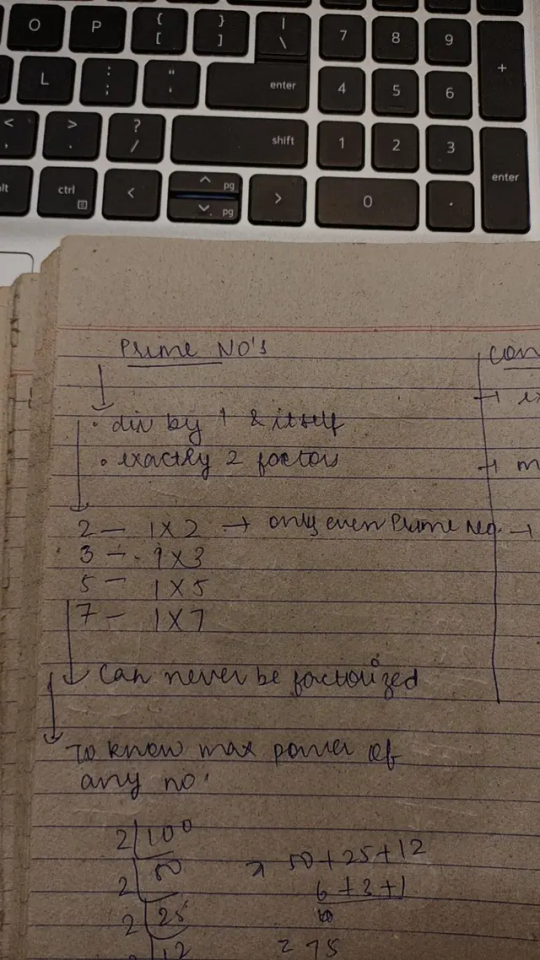 O P { [ } ] | \ 7 8 9 +
L : ; " ' enter 4 5 6
< , > . ? / shift 1 2 3 enter
ctrl < pg pg > 0 .
Prime NO's
• div by 1 & itself
• exactly 2 factors
2 - 1 X 2 → only even Prime no.
3 - 1 X 3
5 - 1 X 5
7 - 1 X 7
can never be factorized
To know max power of
any no.
2 | 100
2 | 50
2 | 25
12
50 + 25 + 12
6 + 3 + 1
= 75